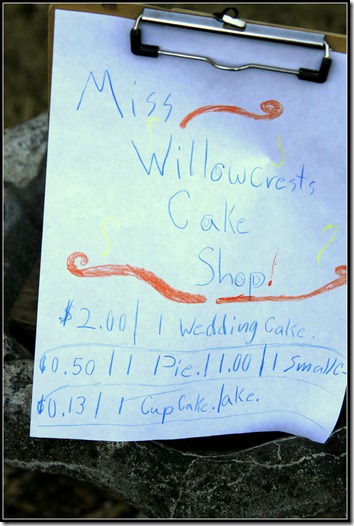 Miss
Willowcrests
Cake
Shop!
$2.00 | 1 Wedding Cake.
$0.50 | 1 Pie. | 1.00 | 1 Small c-
$0.13 | 1 CupCake. /ake.